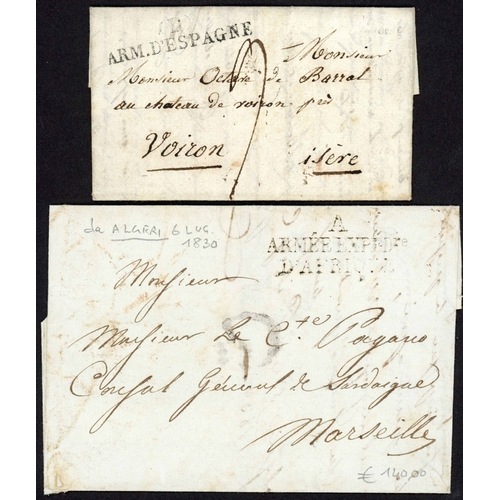 ARM. D'ESPAGNE
Monsieur
Monsieur Octave de Barral
au chateau de voiron près
Voiron isère
da ALGERI 6 LUG.
1830
A
ARMÉE EXPED.re
D'AFRIQUE
Monsieur
Monsieur Le C.te Pagano
Consul Général de Sardaigne
Marseille
€ 140,00